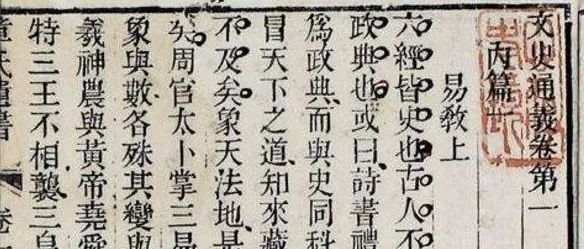 文史通義卷第一
內篇一
易敎上
六經皆史也古人不
政典也或曰詩書禮
爲政典而與史同科
冒天下之道知來藏
不及矣象天法地是
矣周官太卜掌三易
象與數各殊其變與
羲神農與黃帝堯舜
特三王不相襲三皇
章氏遺書 卷